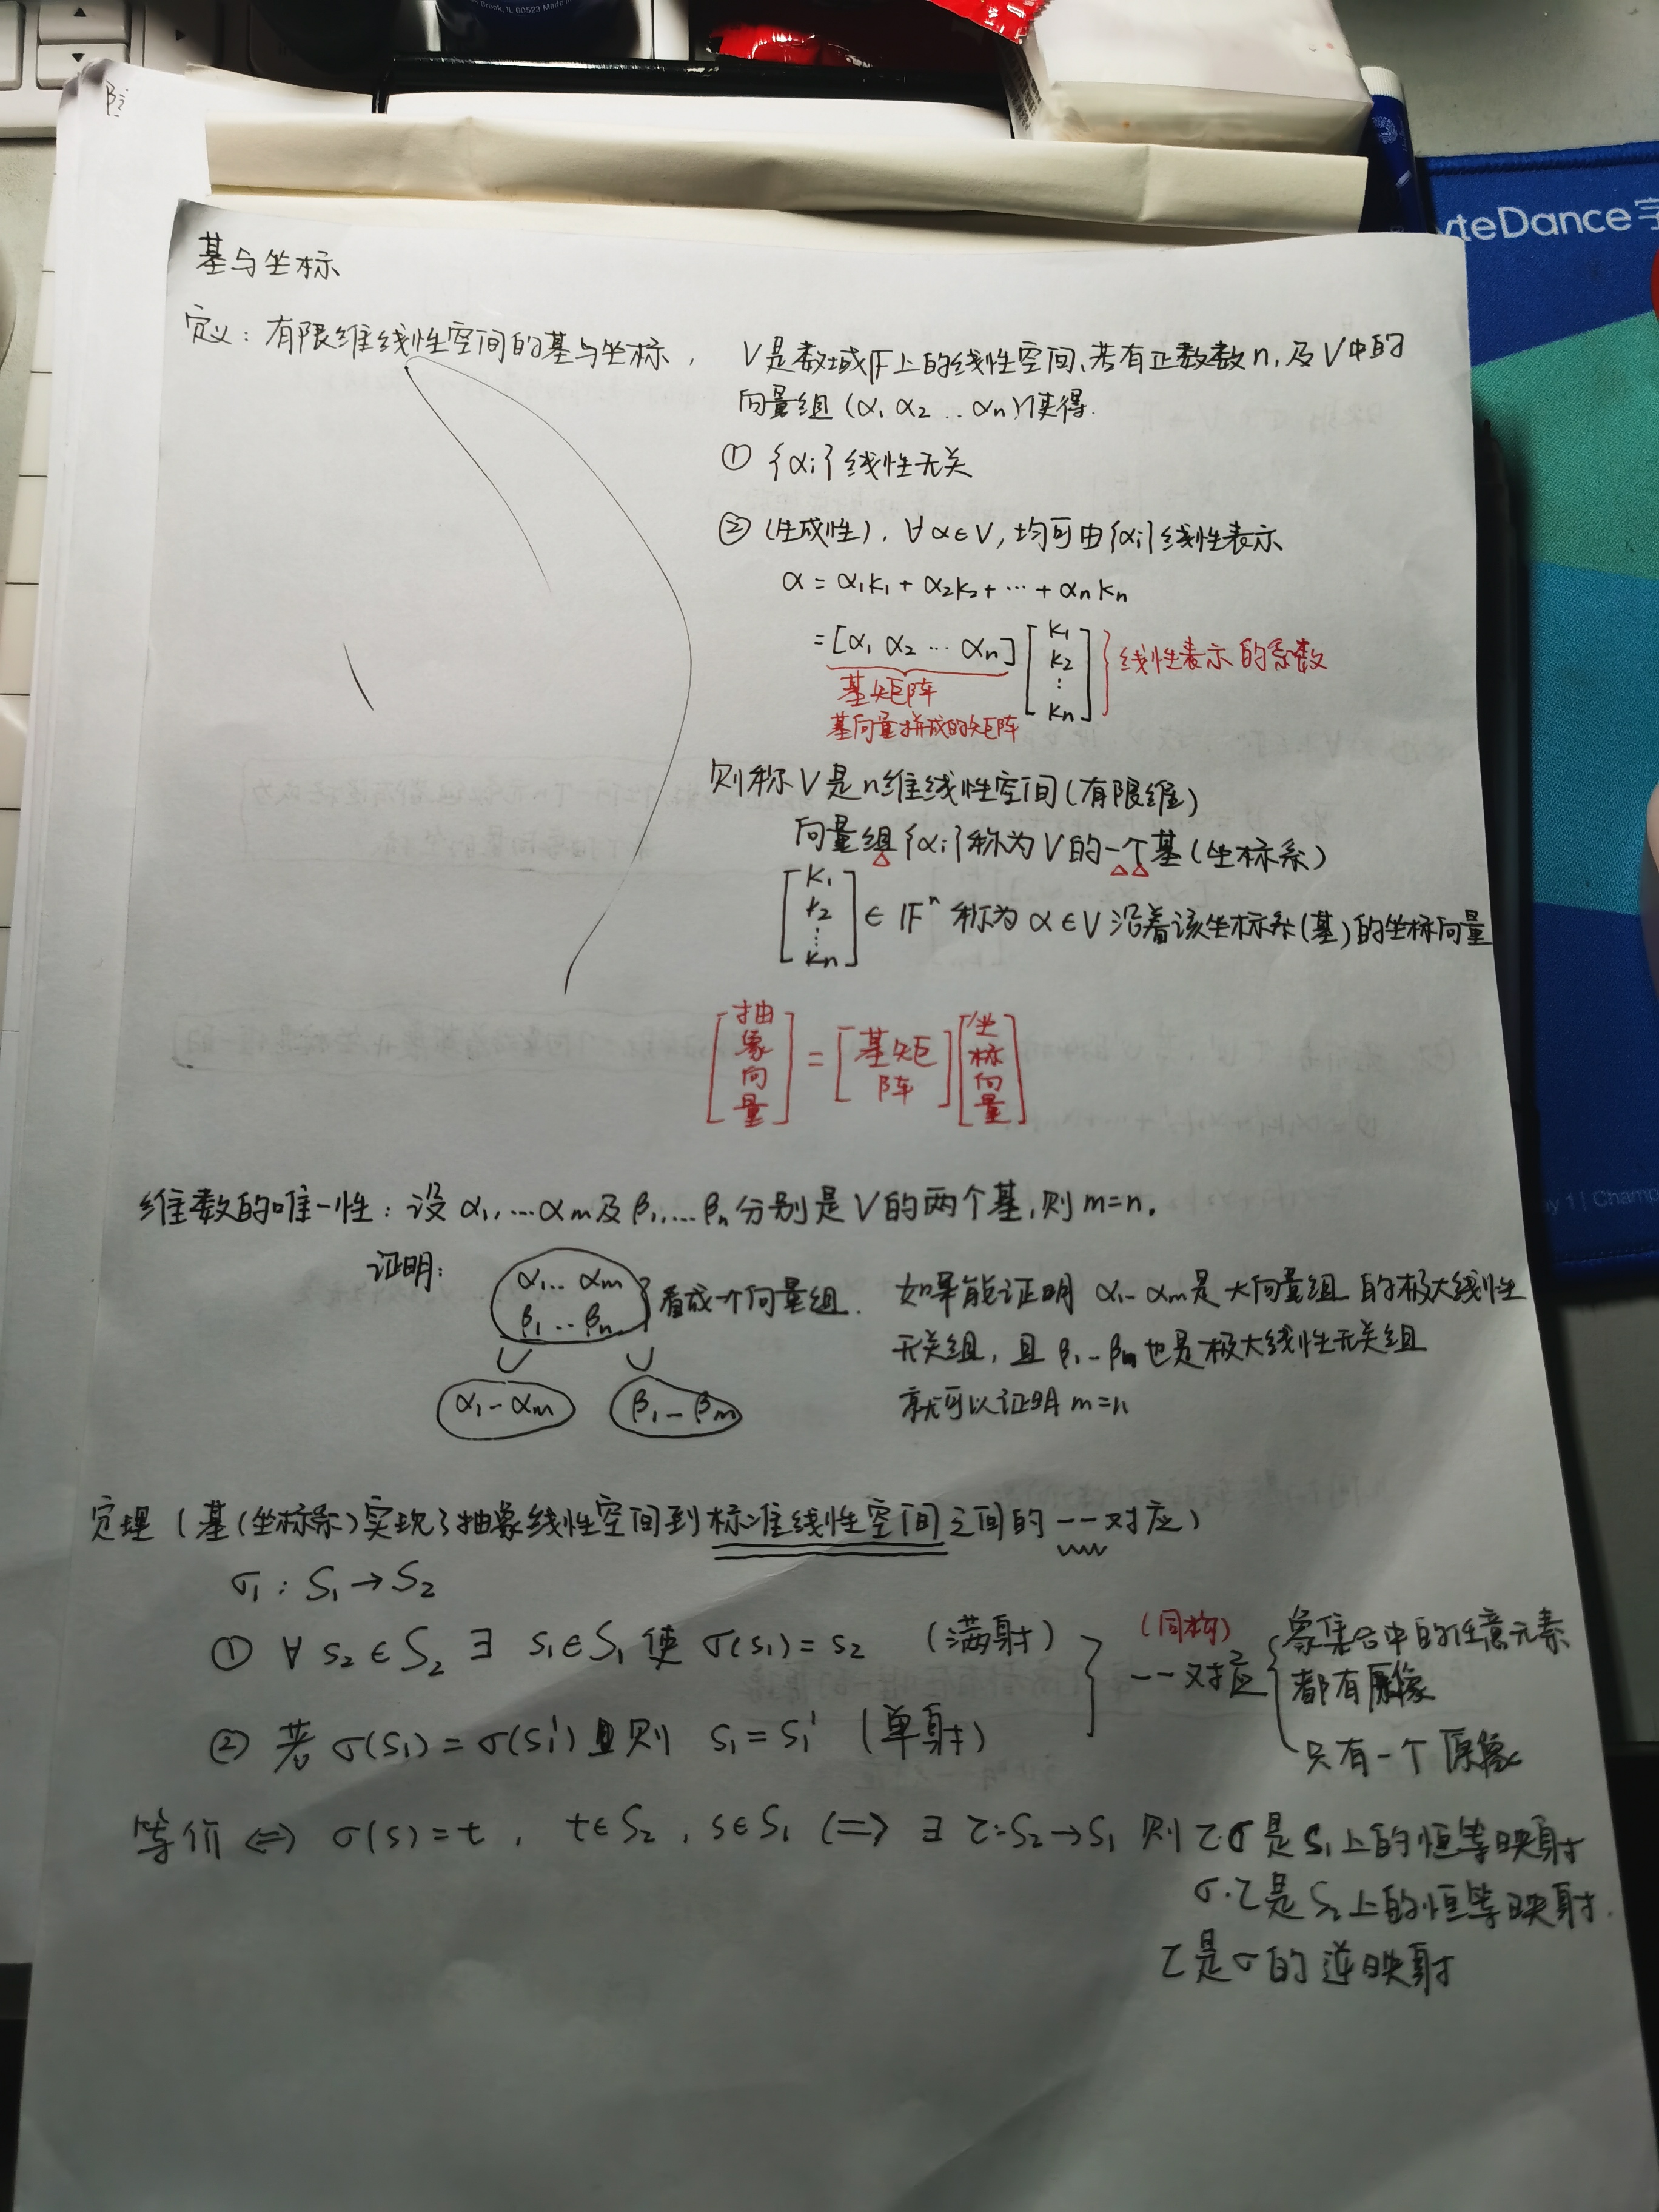 Brook, IL 60523 Made in
βi
yteDance 字
基与坐标
定义：有限维线性空间的基与坐标，
V是数域𝔽上的线性空间、若有正数数n，及V中的
向量组（α₁ α₂ .. αn）使得.
① {αi}线性无关
② (生成性)，∀α∈V，均可由{αi}线性表示
α = α₁k₁ + α₂k₂ + ⋯ + αn kn
= [α₁ α₂ ⋯ αn] [k₁ k₂ ⋮ kn] }线性表示的系数
基矩阵
基向量拼成的矩阵
则称V是n维线性空间(有限维)
向量组{αi}称为V的一个基(坐标系)
[k₁ k₂ ⋮ kn] ∈ 𝔽ⁿ 称为α∈V沿着该坐标系(基)的坐标向量
[抽象向量] = [基矩阵] [坐标向量]
维数的唯一性：设α₁,…αm及β₁,…βn分别是V的两个基，则m=n.
证明：
α₁… αm
β₁ … βn
}看成一个向量组.
α₁-αm
β₁-βm
如果能证明α₁-αm是大向量组的极大线性
无关组，且β₁-βm也是极大线性无关组
就可以证明m=n
定理(基(坐标系)实现了抽象线性空间到标准线性空间之间的一一对应)
σ₁ : S₁→S₂
① ∀ s₂∈S₂ ∃ s₁∈S₁ 使 σ(s₁)=s₂ (满射)
② 若σ(s₁)=σ(s₁')且则 s₁=s₁' (单射)
(同构)
一一对应
象集合中的任意元素
都有原像
只有一个原像
等价⇔ σ(s)=t， t∈S₂，s∈S₁ ⇔ ∃ τ:S₂→S₁ 则τ·σ是S₁上的恒等映射
σ·τ是S₂上的恒等映射.
τ是σ的逆映射
y 1 | Champ